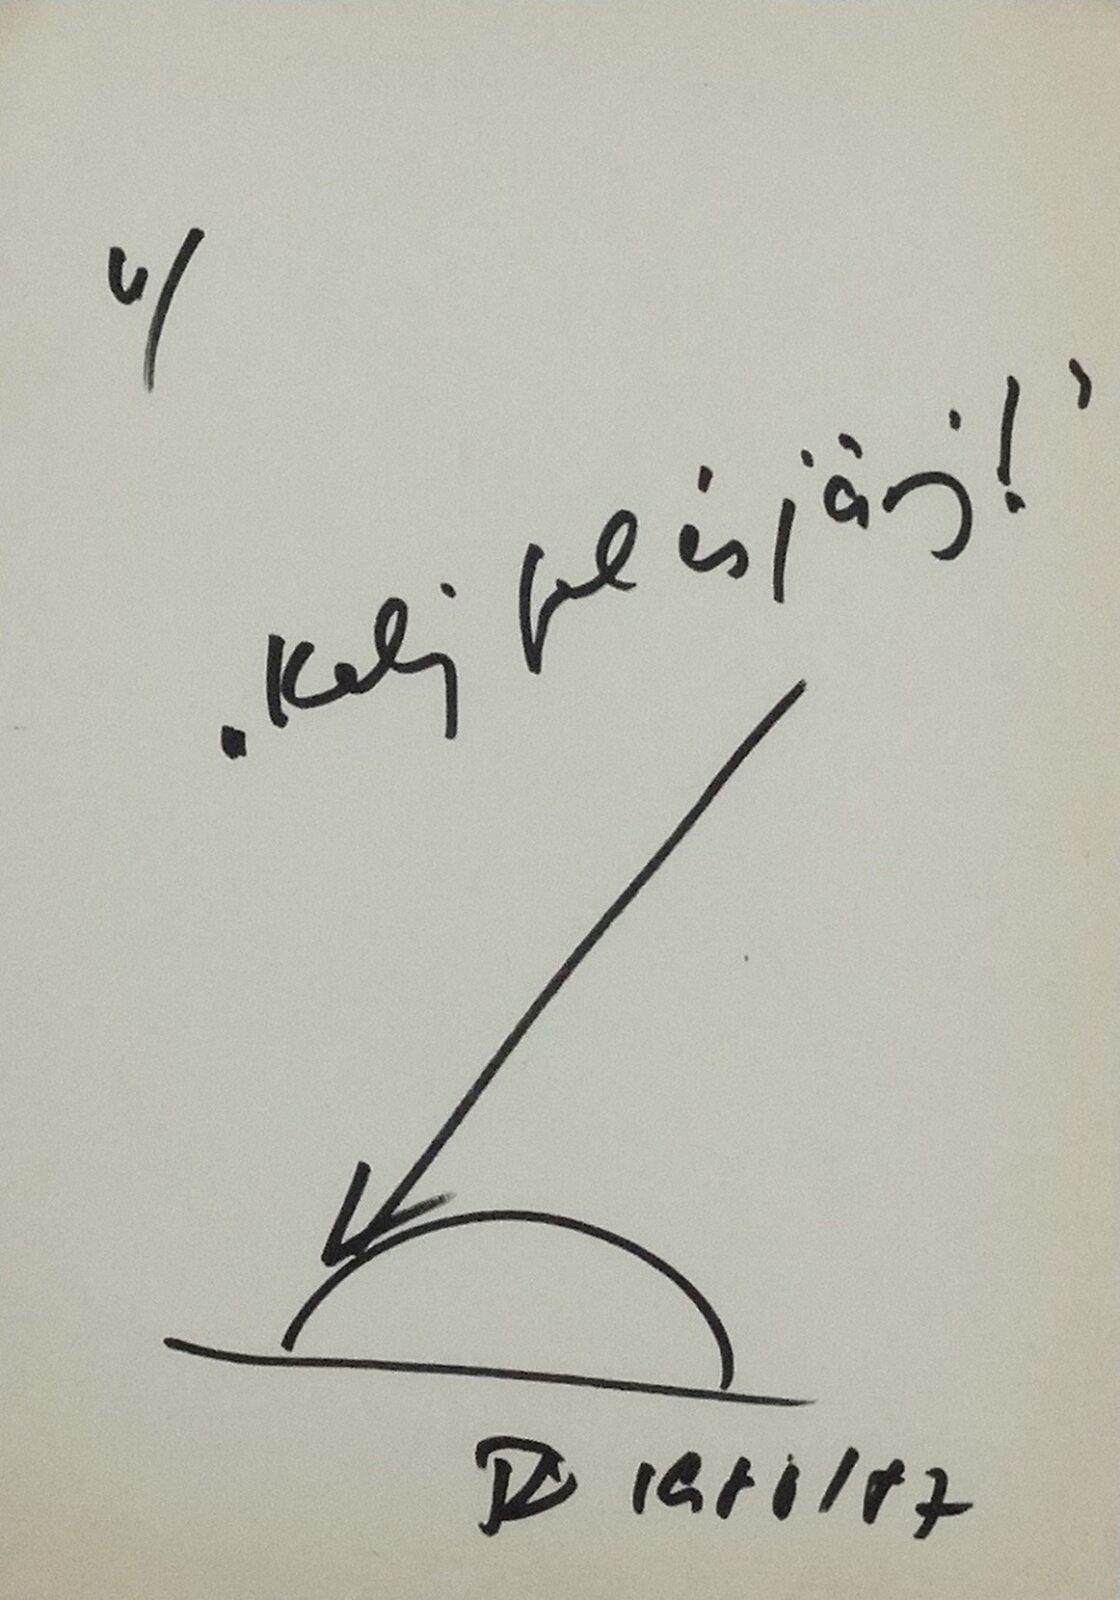 „Kelj fel és járj!”
1986/87